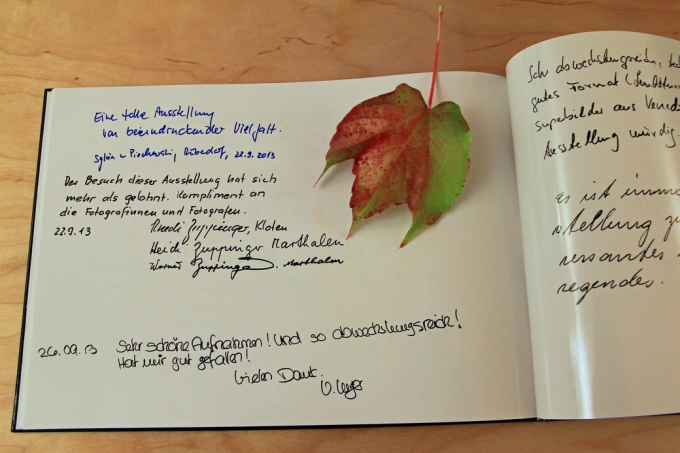 Eine tolle Ausstellung
von beeindruckender Vielfalt.
Sylvia 22.9.2013
Der Besuch dieser Ausstellung hat sich
mehr als gelohnt. Kompliment an
die Fotografinnen und Fotografen.
22.9.13 Ruedi Zuppinger, Kloten
Heidi Zuppinger Marthalen
Werner Zuppinger. Marthalen
26.09.13 Sehr schöne Aufnahmen! Und so abwechslungsreich!
Hat mir gut gefallen!
Vielen Dank.
Sehr abwechslungsreich,
gutes Format
superbilder aus Vened
Ausstellung würdig.
Es ist imme
stellung z
regendes.